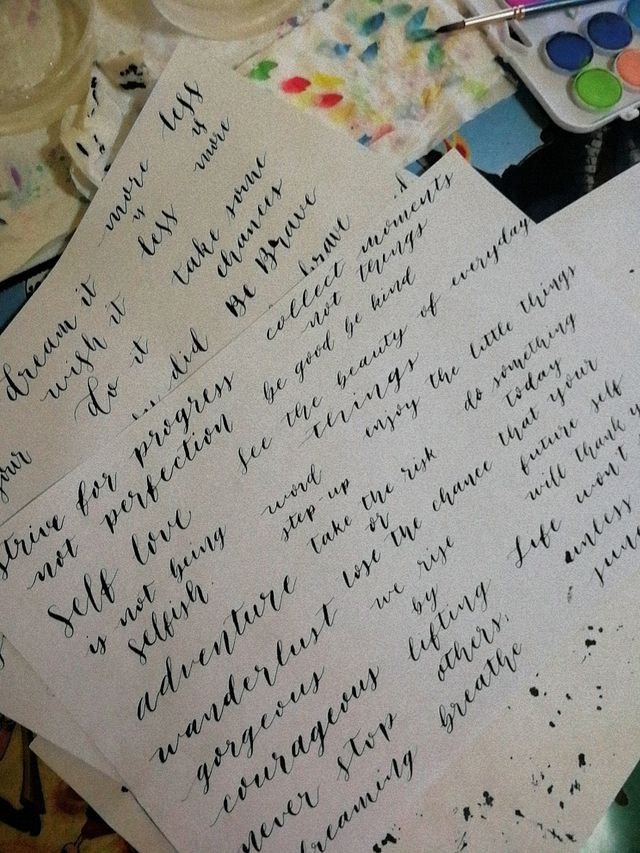 less
is
more
more
is
less
take some
chances
Be Brave
brave
dream it
wish it
do it
did
your
collect moments
not things
be good be kind
strive for progress
not perfection
see the beauty of everyday
things
enjoy the little things
self love
is not being
selfish.
word
step-up
take the risk
or
lose the chance
do something
today
that your
future self
will thank
adventure
wanderlust
gorgeous
courageous
never stop
dreaming
we rise
by
lifting
others.
breathe
Life won't
unless